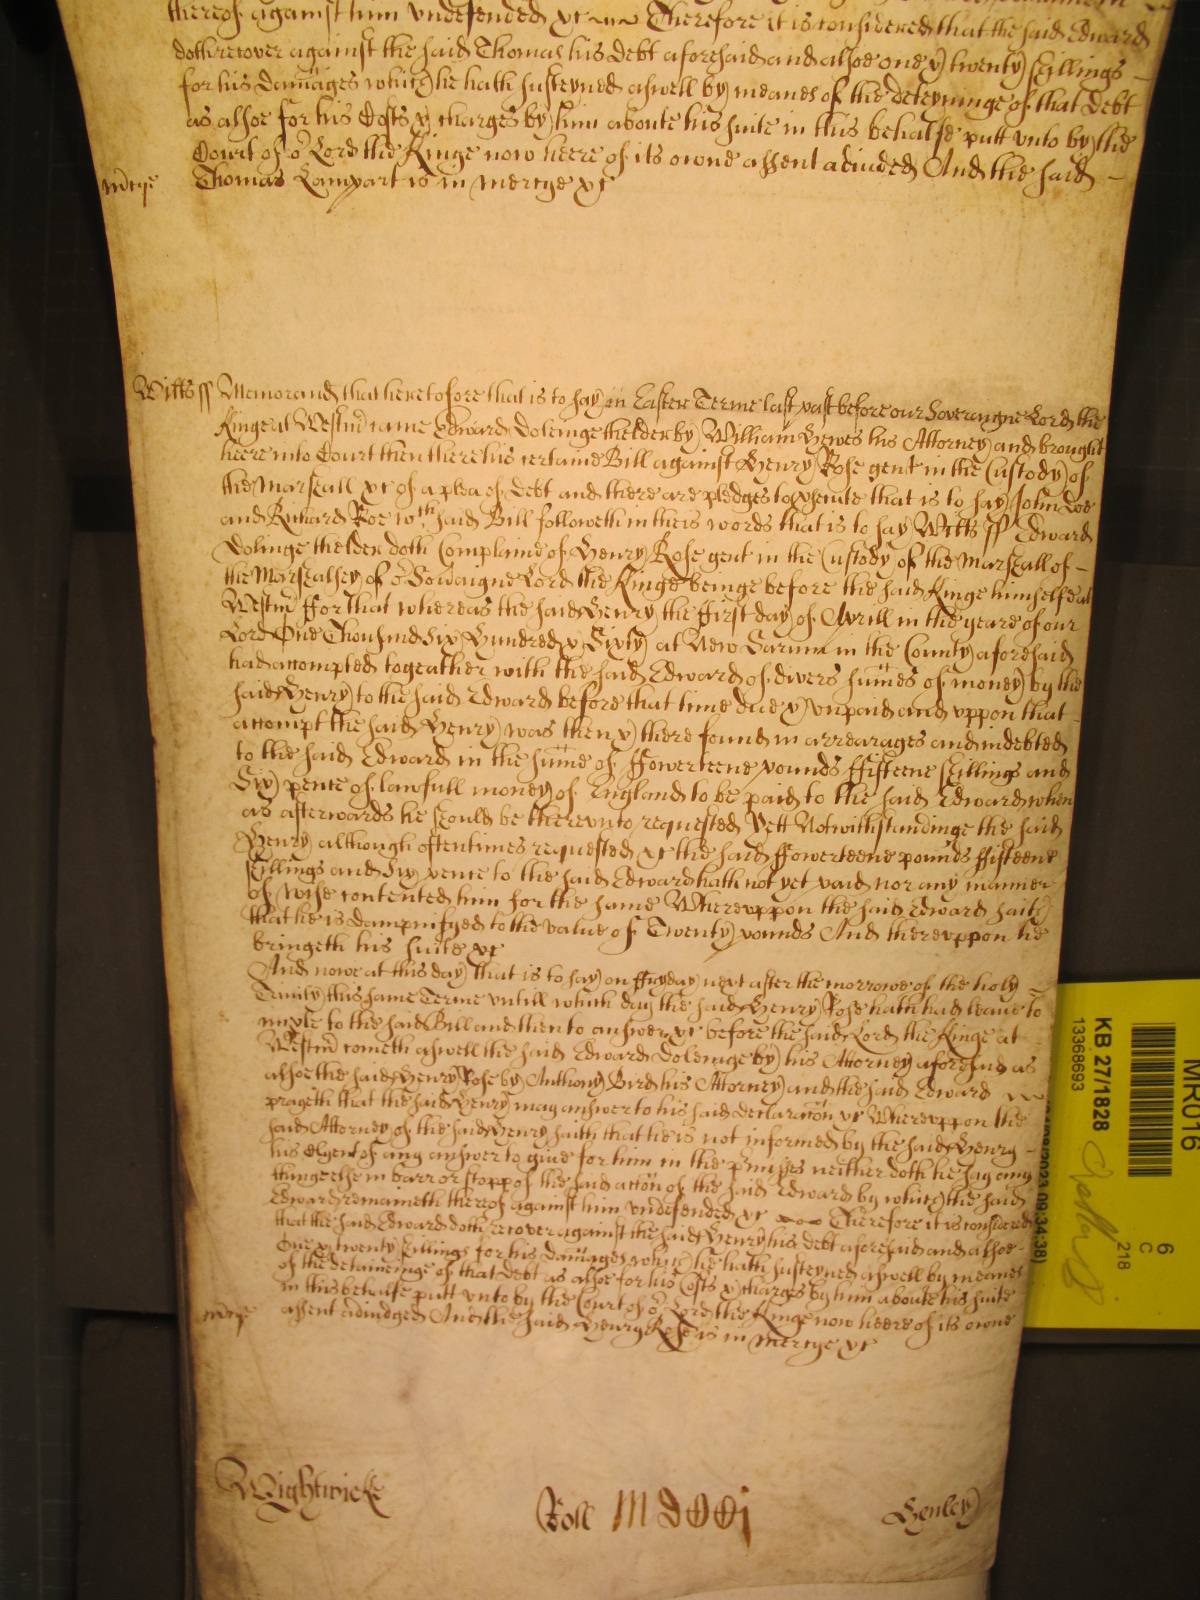 thereof against him undefended &c Therefore it is considered that the said Edward
doth recover against the said Thomas his Debt aforesaid and alsoe one & twenty shillings
for his damages which he hath susteyned aswell by meanes of the deteyninge of that Debt
as alsoe for his Costs & charges by him aboute his suite in this behalfe putt unto by the
Court of or Lord the Kinge now heere of its owne assent adiudged And the said
Thomas Lampart is in mercye &c
Wiltes ss Memorand that heretofore that is to say in Easter Terme last past before our Soveraigne Lord the
Kinge at Westm came Edward Doleinge thelder by William Hewes his Attorney and brought
heere into Court then there his certaine Bill against Henry Rose gent in the Custody of
the Marshall &c of a plea of Debt and there are pledges to p[ro]secute that is to say John Doe
and Richard Roe wch said Bill followeth in theis words that is to say Wiltes ss Edward
Dolinge thelder doth Complaine of Henry Rose gent in the Custody of the Marshall of
the Marshalsey of or Sovaigne Lord the Kinge beinge before the said Kinge himselfe at
Westm ffor that whereas the said Henry the ffirst day of Aprill in the yeare of our
Lord One Thousand Six Hundred & Sixty at New Sarum in the County aforesaid
had accompted togeather with the said Edward of divers summes of money by the
said Henry to the said Edward before that time due & unpaid and uppon that
accompt the said Henry was then & there found in arrearages and indebted
to the said Edward in the summe of ffowerteene pounds ffifteene shillings and
Six pence of lawfull money of England to be paid to the said Edward when
as afterwards he should be thereunto requested Yett Notwithstandinge the said
Henry although oftentimes requested &c the said ffowerteene pounds ffifteene
shillings and Six pence to the said Edward hath not yet paid nor any manner
of wise contented him for the same Whereuppon the said Edward saith
that he is dampnifyed to the value of Twenty pounds And thereuppon he
bringeth his suite &c
And nowe at this day that is to say on ffryday next after the morrowe of the holy
Trinity this same Terme untill which day the said Henry Rose hath had leave to
imple to the said Bill and then to answer &c before the said Lord the Kinge at
Westm cometh aswell the said Edward Doleinge by his Attorney aforesaid as
alsoe the said Henry Rose by Anthony Bird his Attorney and the said Edward
prayeth that the said Henry may answer to his said declaracon &c Whereuppon the
said Attorney of the said Henry saith that he is not informed by the said Henry
his Clyent of any answer to give for him in the pmisses neither doth he say any
thinge else in barr or stopp of the said accon of the said Edward by which the said
Edward remaineth thereof against him undefended &c Therefore it is considered
that the said Edward doth recover against the said Henry his debt aforesaid and alsoe
One & twenty shillings for his damages which he hath susteyned aswell by meanes
of the detaineinge of that debt as alsoe for his Costs & charges by him aboute his suite
in this behalfe putt unto by the Court of or Lord the Kinge now heere of its owne
assent adiudged And the said Henry Rose is in mercye &c
Wightwicke
Roll MDCCj
Henley
MR016
KB 27/1828
13368693
6
C
218
2023 09:34:38)